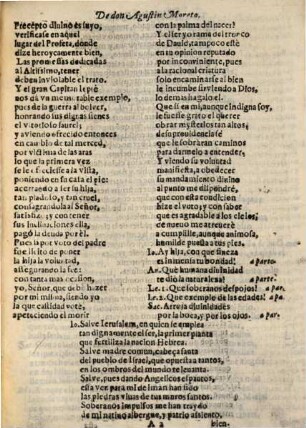 De don Agustin Moreto.
Precepto diuino es suyo,
verificase en aquel
lugar del Profeta, donde
dize heroycamente bien,
Las promessas dedicadas
al Altissimo, tener
deben inviolable el trato.
Y el gran Capitan Iepte
nos da vn inconstable exemplo,
pues de la guerra al bolver,
honrando sus dignas sienes
el vitorioso laurel;
y aviendo ofrecido entonces
en cambio de tal merced,
por victima de las aras
lo que la primera vez
se le ofreciesse a la vista,
poniendo en su casa el pie:
acertando a ser su hija,
tan piadoso, y tan cruel,
consagrandola al Señor,
satisfizo; y con tener
sus inclinaciones ella,
pagò la deuda por èl.
Pues si a la voto del padre
fue licito de poner
la hija la voluntad,
assegurando la fee
con tanta mas ocasion,
yo, Señor, que debi hazer
por mi misma, siendo yo
la que calidad votè,
apeteciendo el morir
con la palma del nacer?
Y el ser yo rama del tronco
de Dauid, tampoco està
en su opinion reputado
por inconveniente, pues
a la racional criatura
solo encaminarse al bien
le incumbe sirviendo a Dios,
lo demas hagalo el.
Que si en mi, aunque indigna soy,
le fuesse grato el querer
obrar mysterios tan altos;
de su prouidencia sè
que le sobraràn caminos
para darmelo a entender,
Y viendo su voluntad
manifiesta, a obedecer
su mandamiento diuino
al punto me dispondrè,
que con esta condicion
hize el voto; y con saber
que es agradable a los cielos,
de nueuo me atreuerè
a cumplille, aunque asimosa,
humilde puesta a tus pies.
Io. Ay hija, con que finezas
es inmensa tu bondad! aparte.
As. Què humana diuinidad
te diò la naturaleza! a par.
Le. 1. Què soberanos despojos! apar.
Le. 2. Què exemplo de las edades! a pa.
Sac. Arroja diuinidades
por la boca, y por los ojos. apar.
Io. Salve Ierusalem, en quien se emplea
tan dignamente el ser, la primer planta
que fertiliza la nacion Hebrea.
Salve madre comun, cabeça santa
del pueblo de Israel, que opuesta a tantos,
en los ombros del mundo te levanta.
Salve, pues dando Angelicos espantos,
esta vez para mi de iman han sido
las piedras viuas de tus muros santos.
Soberanos impulsos me han traydo
de mi natiuo albergue, y patrio assiento,
A 2
bien.